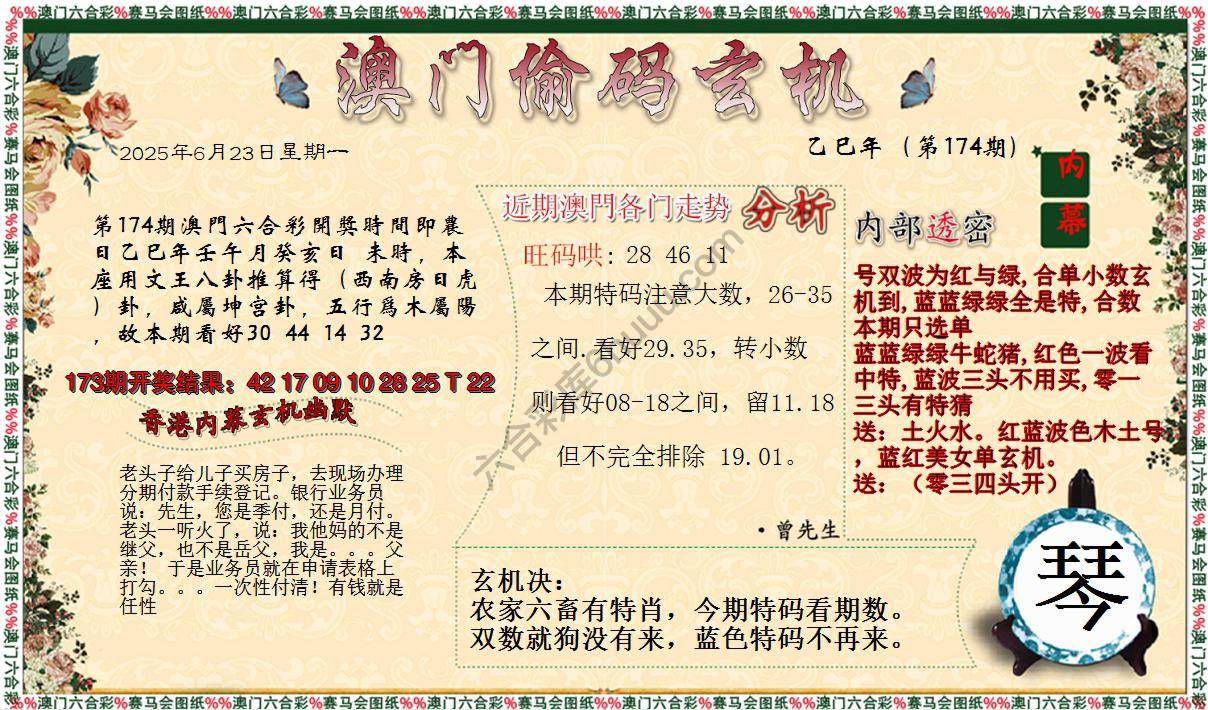 %%澳门六合彩%赛马会图纸%%澳门六合彩%赛马会图纸%%澳门六合彩%赛马会图纸%%澳门六合彩%赛马会图纸%%澳门六合彩%赛马会图纸%%澳门六合彩%赛马会图纸%%
澳门偷码玄机
2025年6月23日星期一
乙巳年（第174期）
内
幕
第174期澳門六合彩開獎時間即農
日乙巳年壬午月癸亥日 未時，本
座用文王八卦推算得（西南房日虎
）卦，咸屬坤宫卦，五行爲木屬陽
，故本期看好30 44 14 32
173期开奖结果：42 17 09 10 28 25 T 22
香港内幕玄机幽默
老头子给儿子买房子，去现场办理
分期付款手续登记。银行业务员
说：先生，您是季付，还是月付。
老头一听火了，说：我他妈的不是
继父，也不是岳父，我是。。。父
亲！ 于是业务员就在申请表格上
打勾。。。一次性付清！有钱就是
任性
近期澳門各门走势 分析
旺码哄: 28 46 11
本期特码注意大数，26-35
之间.看好29.35，转小数
则看好08-18之间，留11.18
但不完全排除 19.01。
·曾先生
内部透密
号双波为红与绿,合单小数玄
机到,蓝蓝绿绿全是特,合数
本期只选单
蓝蓝绿绿牛蛇猪,红色一波看
中特,蓝波三头不用买,零一
三头有特猜
送：土火水。红蓝波色木土号
，蓝红美女单玄机。
送：（零三四头开）
玄机决：
农家六畜有特肖，今期特码看期数。
双数就狗没有来，蓝色特码不再来。
琴
%%澳门六合彩%赛马会图纸%%澳门六合彩%赛马会图纸%%澳门六合彩%赛马会图纸%%澳门六合彩%赛马会图纸%%澳门六合彩%赛马会图纸%%澳门六合彩%赛马会图纸%%